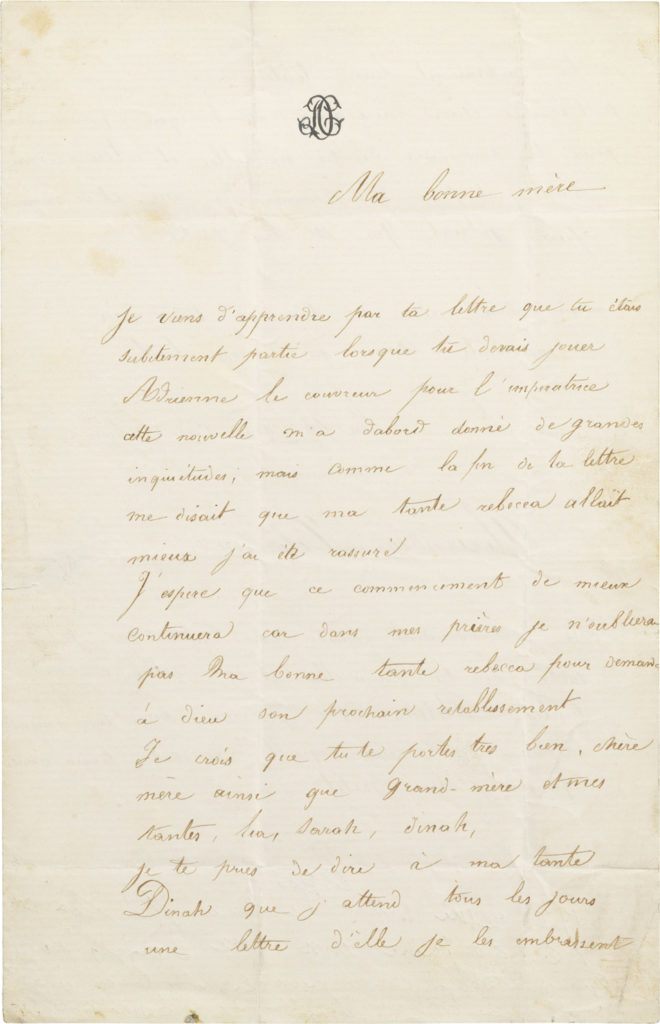 Ma bonne mère
Je viens d'apprendre par ta lettre que tu étais
subitement partie lorsque tu devais jouer
Adrienne le couvreur pour l'imperatrice
cette nouvelle m'a dabord donné de grandes
inquiétudes; mais comme la fin de ta lettre
me disait que ma tante rebecca allait
mieux j'ai été rassuré
J'espere que ce commencement de mieux
continuera car dans mes prières je n'oublierai
pas Ma bonne tante rebecca pour demande
à dieu son prochain retablissement
Je crois que tu te portes tres bien, chère
mère ainsi que Grand-mère et mes
tantes, lia, sarah, dinah,
je te pries de dire à ma tante
Dinah que j'attend tous les jours
une lettre d'elle je les embrassent